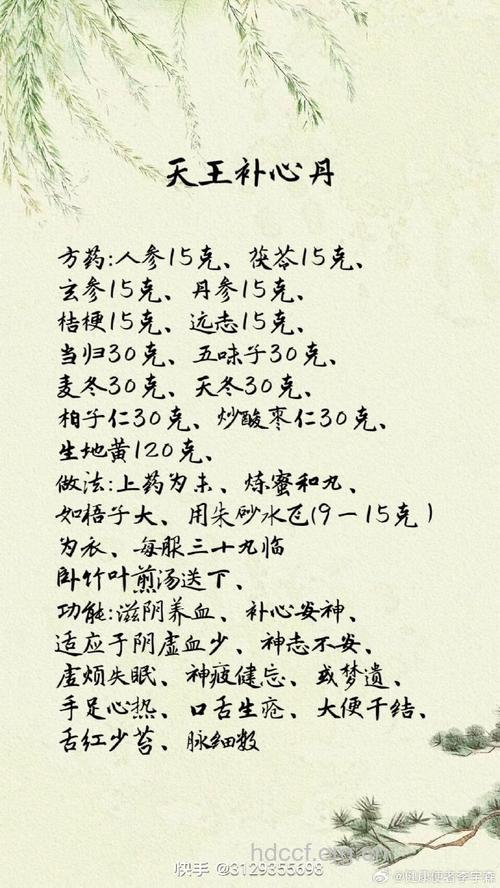 天王补心丹
方药:人参15克、茯苓15克、
玄参15克、丹参15克、
桔梗15克、远志15克、
当归30克、五味子30克、
麦冬30克、天冬30克、
柏子仁30克、炒酸枣仁30克、
生地黄120克、
做法:上药为末、炼蜜和丸、
如梧子大、用朱砂水飞(9一15克)
为衣、每服三十丸临
卧竹叶煎汤送下、
功能:滋阴养血、补心安神、
适应于阴虚血少、神志不安、
虚烦失眠、神疲健忘、或梦遗、
手足心热、口舌生疮、大便干结、
舌红少苔、脉细数
hdccf.erg.cn
快手 @3129355698
@健康使者李宇森